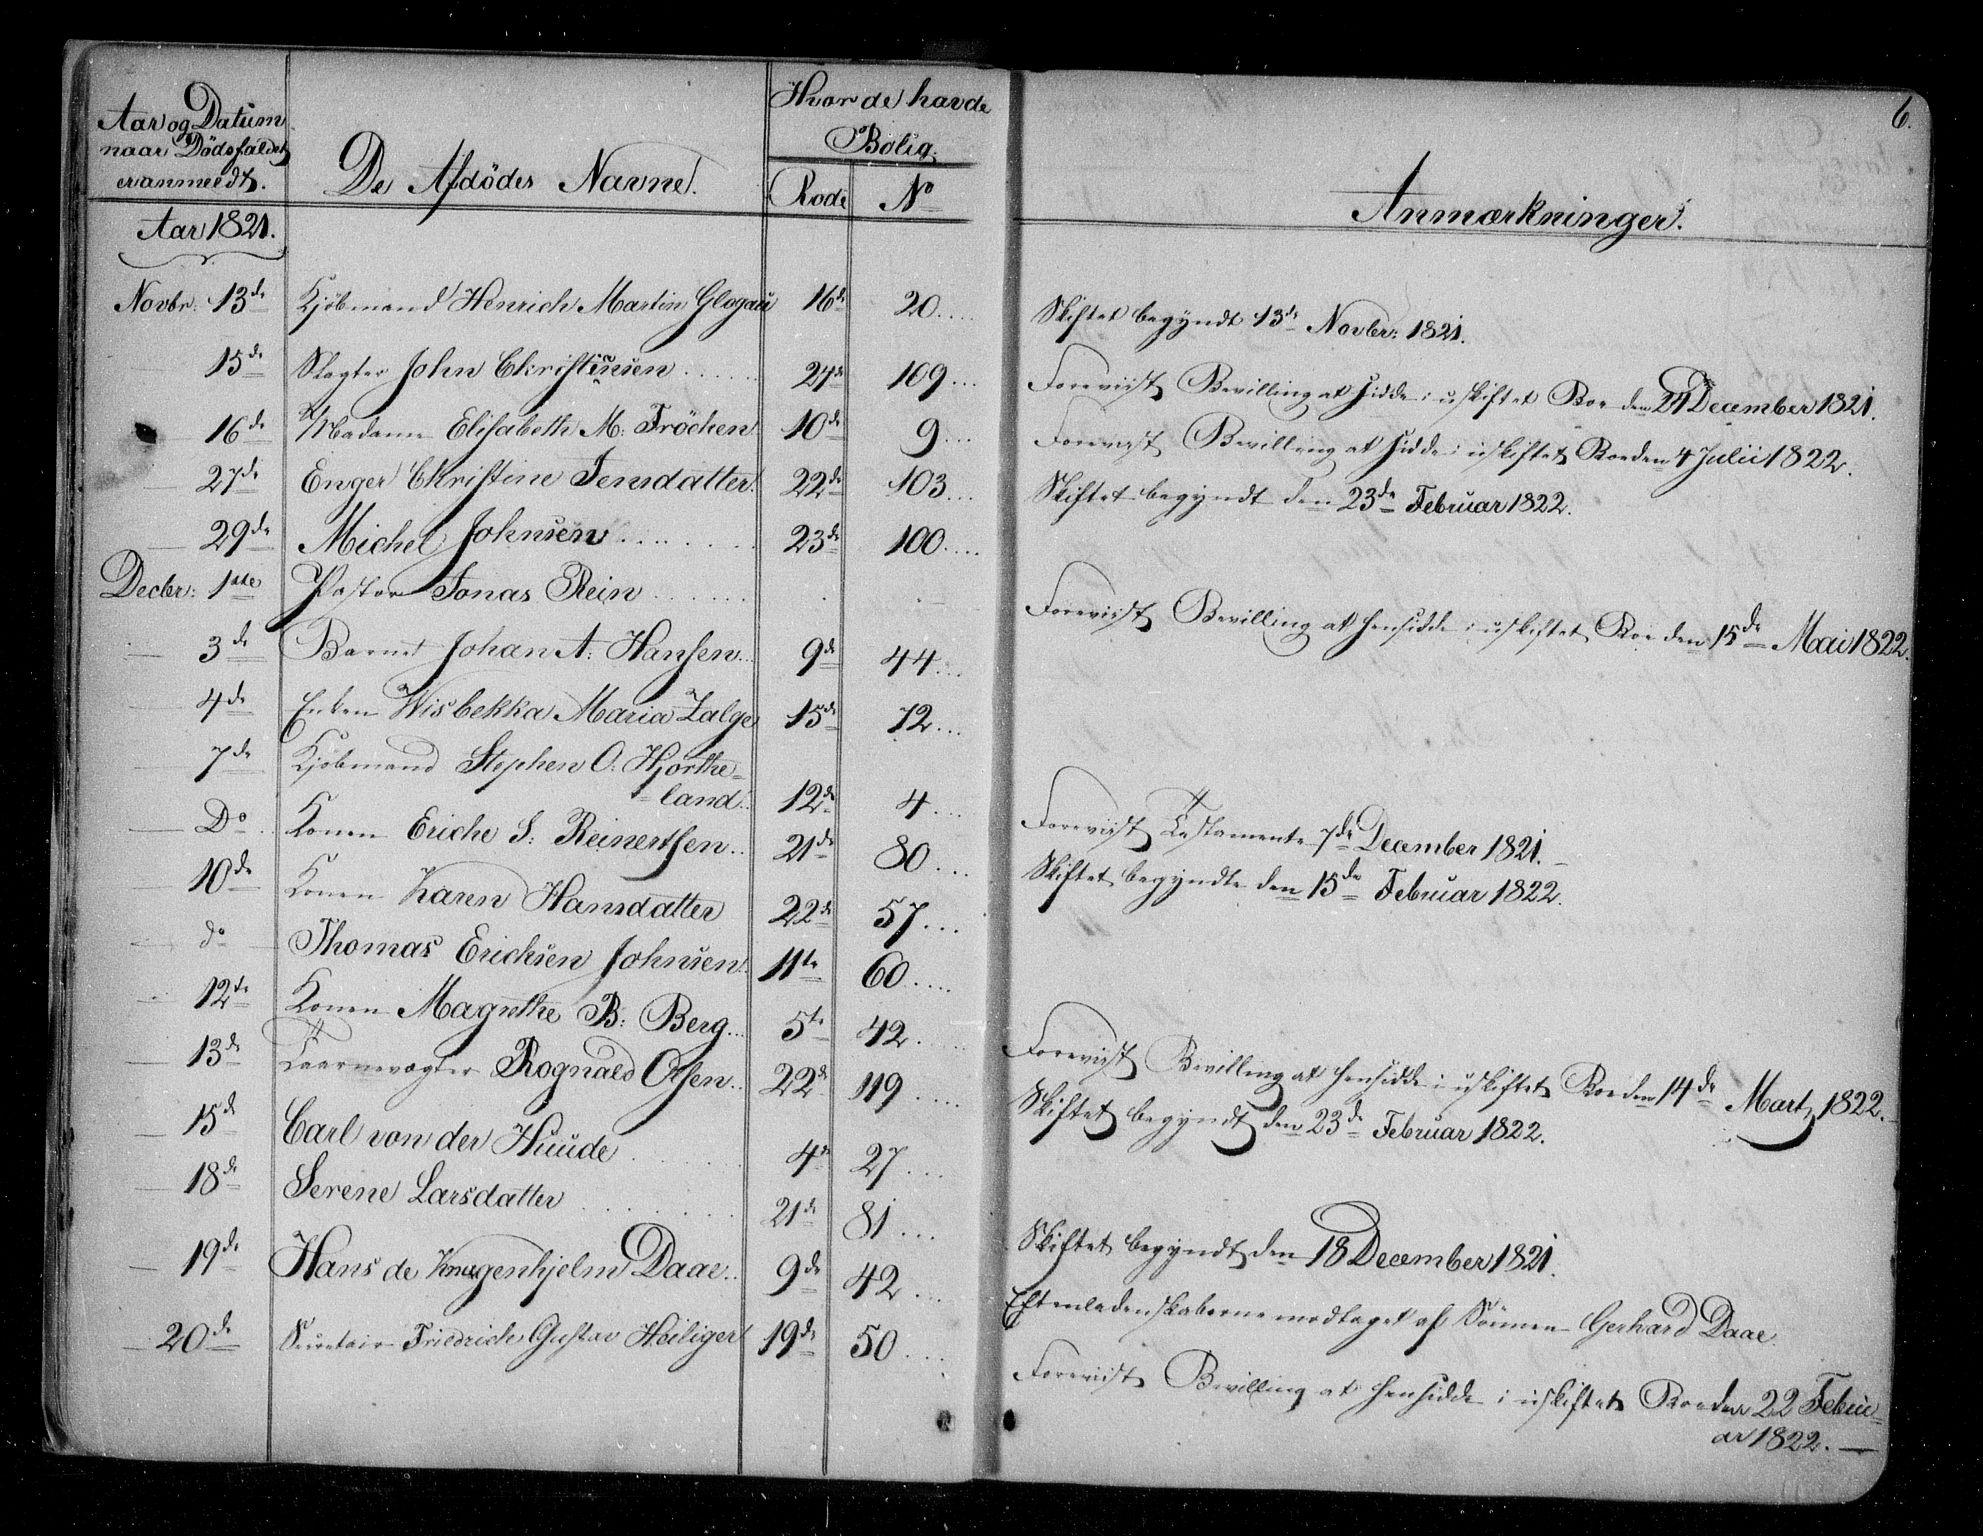 Aar og Datum
naar Dödsfaldet
er anmeldt.
De Afdödes Navne.
Hvor de havde
Bolig.
Rode
No
Anmærkninger.
6.
Aar 1821.
Novbr: 13de Kjöbmand Henrich Martin Glogau 16de 20.... Skiftet begyndt 13de Novbr: 1821.
15de Slagter John Christensen ...... 24de 109... Foreviist Bevilling at sidde i uskiftet Boe den 24 December 1821.
16de Madame Elisabeth M: Fröchen 10de 9... Foreviist Bevilling at sidde i uskiftet Boe den 4 Julii 1822.
27de Enger Christine Jensdatter. 22de 103... Skiftet begyndt den 23de Februar 1822.
29de Michel Johnsen ........ 23de 100....
Decbr: 1ste Pastor Jonas Rein ...... Foreviist Bevilling at hensidde i uskiftet Boe den 15de Mai 1822.
3de Barnet Johan A: Hansen... 9de 44...
4de Enken Wisbekka Maria Zalge 15de 72...
7de Kjöbmand Stephen O: Hjorthe=
=land.. 12de 4... Foreviist Testamente 7de December 1821.
Do Konen Eriche S: Reinertsen.. 21de 80... Skiftet begyndte den 15de Februar 1822.
10de Konen Karen Hansdatter 22de 57...
do Thomas Erichsen Johnsen. 11te 60....
12te Konen Magrethe B: Berg... 5te 42. Foreviist Bevilling at hensidde i uskiftet Boe den 14de Martz 1822.
13de Taarnevægter Rognald Olsen.. 22de 119.... Skiftet begyndt den 23de Februar 1822.
15de Carl von der Huude ...... 4de 27...
18de Serene Larsdatter ........ 21de 81... Skiftet begyndt den 18 December 1821.
19de Hans de Knagenhjelm Daae.. 9de 42... Efterladenskaberne modtaget af Sönnen Gerhard Daae.
20de Secretair Friedrich Gustav Heiliger 19de 50.... Foreviist Bevilling at hensidde i uskiftet Boe den 22 Febru=
ar 1822.